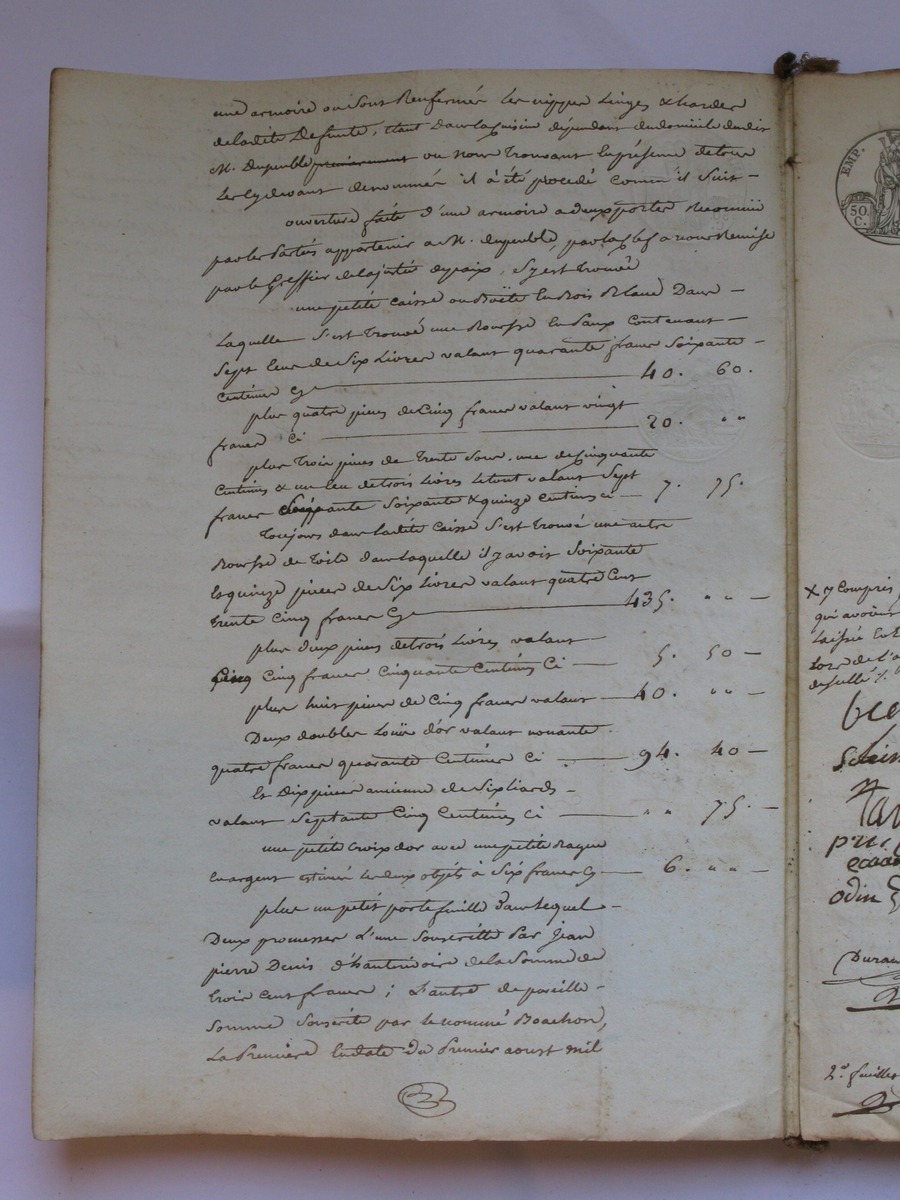 une armoire ou sont Renfermés les nippes Linges & hardes
de ladite Defunte, Etant dans la Cuisine dépendant du domicile dudit
M. Dupeuble premièrement ou nous trouvant En présence de tous
Les Cy devant denommés il à été procedé comm' il suit —
ouverture faite d'une armoire a deux portes Reconnüe
par les Partés appartenir a M. dupeuble, par la clef a nous Remise
par le Greffier de la justice de paix, s'y est trouvé
une petite Caisse ou Boëte En Bois Blanc Dans —
Laquelle s'est trouvé une Bourse En Peaux Contenant —
Sept Ecus de Six Livres valant quarante francs soixante —
Centimes Cy 40. 60.
plus quatre pieces de Cinq francs valant vingt
francs Ci 20. " "
plus trois pieces de trente sous, une de Cinquante
Centimes & un Ecu de trois Livres Le tout valant Sept
francs soixante & quinze Centimes ci — 7. 75.
Toujours dans ladite Caisse s'est trouvé une autre
Bourse de Toile dans Laquelle il y avoit Soixante
& quinze pieces de Six Livres valant quatre Cent
trente Cinq francs Cy 435. " " —
plus deux pieces de trois Livres valant —
Cinq francs Cinquante Centimes Ci — 5. 50 —
plus huit pieces de Cinq francs valant — 40. " " —
Deux doubles Louis d'or valant nonante
quatre francs quarante Centimes Ci — 94. 40 —
Et Dix pieces ancienne de Six liards —
valant Septante Cinq Centimes Ci — " " 75. —
une petite Croix d'or avec une petite Bague
En argent estimés les deux objéts à Six francs Cy — 6. " " —
plus un petit porte feuille Dans Lequel —
Deux promesses L'une Souscritte Par Jean
pierre Denis d'hauterivoire de la Somme de
trois Cent francs ; L'autre de pareille —
Somme Souscrite par le nommé Boachon,
La Premiere En date Du Premier aoust mil
EMP.
50
C.
X y Compris
qui avoient
Laissée
Lors de l'
Duran
2e. feuillet